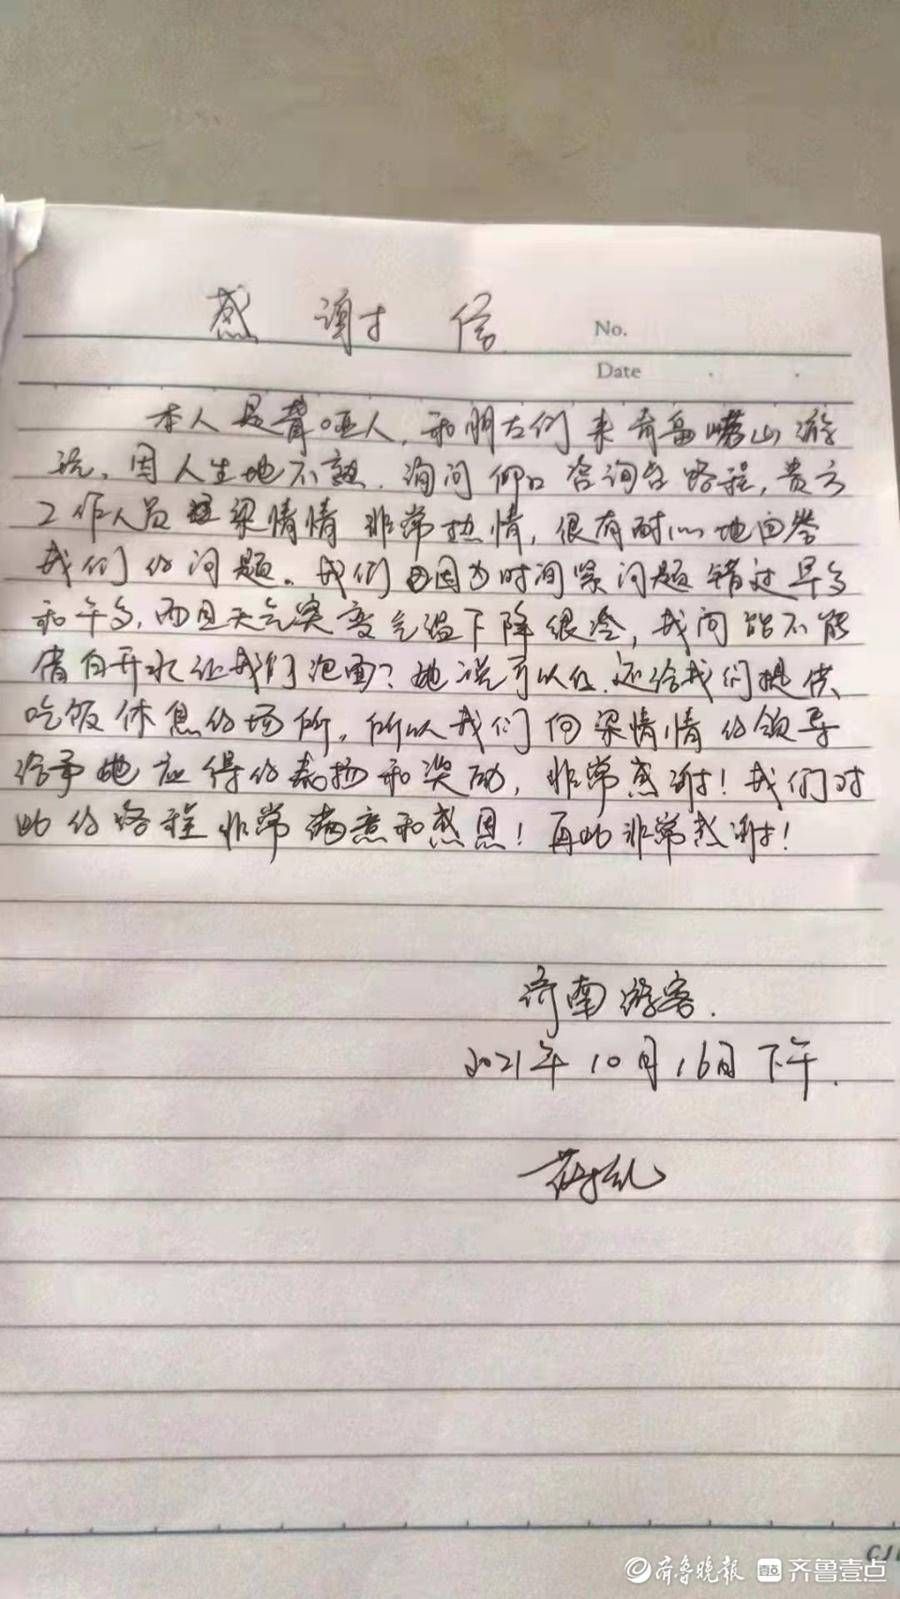 感谢信
No.
Date
本人是聋哑人,和朋友们来青岛崂山游
玩,因人生地不熟,询问仰口咨询台路程,贵方
工作人员梁情情非常热情,很有耐心地回答
我们的问题。我们因为时间紧问题错过早多
和午多,而且天气突变气温下降很冷,我问能不能
借白开水让我们泡面?她说可以的,还给我们提供
吃饭休息的场所,所以我们向梁情情的领导
给予她应得的表扬和奖励,非常感谢!我们对
此的路程非常满意和感恩!再此非常感谢!
济南游客.
2021年10月16日下午.
齐鲁晚报 齐鲁壹点